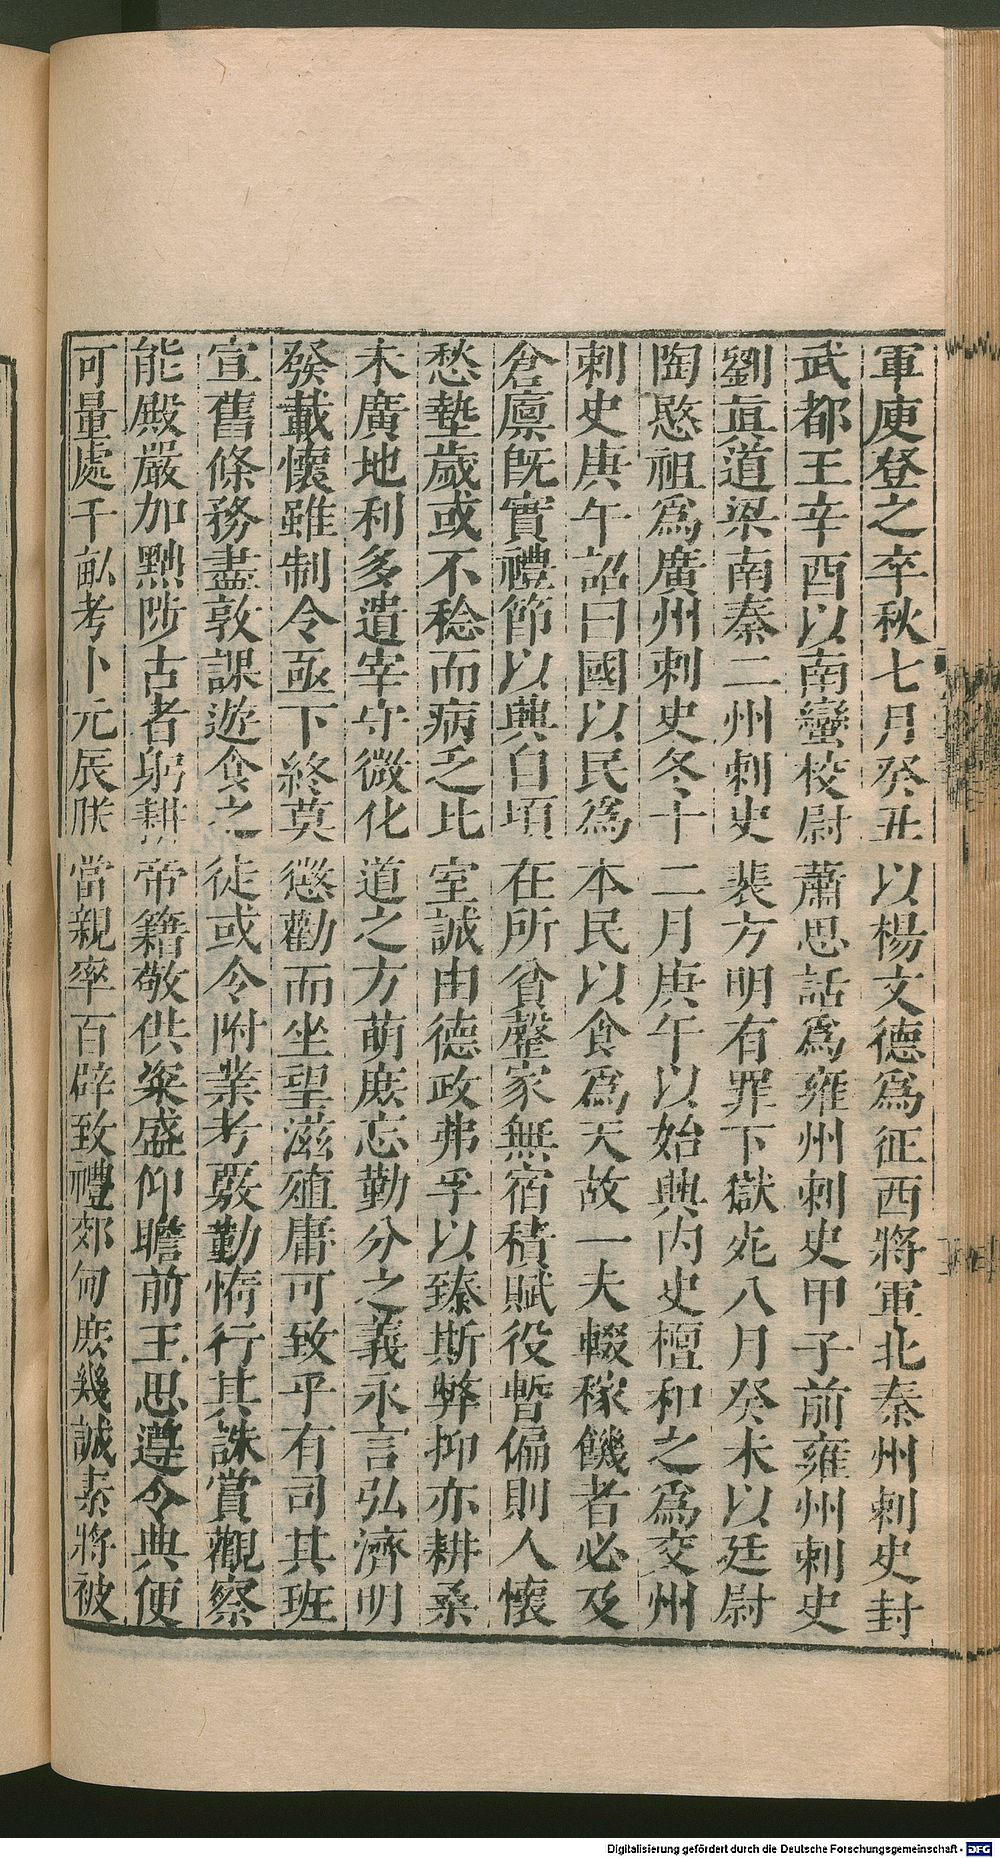 軍庾登之卒秋七月癸丑以楊文德爲征西將軍北秦州刺史封
武都王辛酉以南蠻校尉蕭思話爲雍州刺史甲子前雍州刺史
劉眞道梁南秦二州刺史裴方明有罪下獄死八月癸未以廷尉
陶愍祖爲廣州刺史冬十二月庚午以始興內史檀和之爲交州
刺史庚午詔曰國以民爲本民以食爲天故一夫輟稼饑者必及
倉廩旣實禮節以興自頃在所貧罄家無宿積賦役暫偏則人懷
愁墊歲或不稔而病乏比室誠由德政弗孚以臻斯弊抑亦耕桑
未廣地利多遺宰守微化道之方萌庶忘勤分之義永言弘濟明
發載懷雖制令亟下終莫懲勸而坐望滋殖庸可致乎有司其班
宣舊條務盡敦課遊食之徒或令附業考覈勤惰行其誅賞觀察
能殿嚴加黜陟古者躬耕帝籍敬供粢盛仰瞻前王思遵令典便
可量處千畝考卜元辰朕當親率百辟致禮郊甸庶幾誠素將被
Digitalisierung gefördert durch die Deutsche Forschungsgemeinschaft - DFG